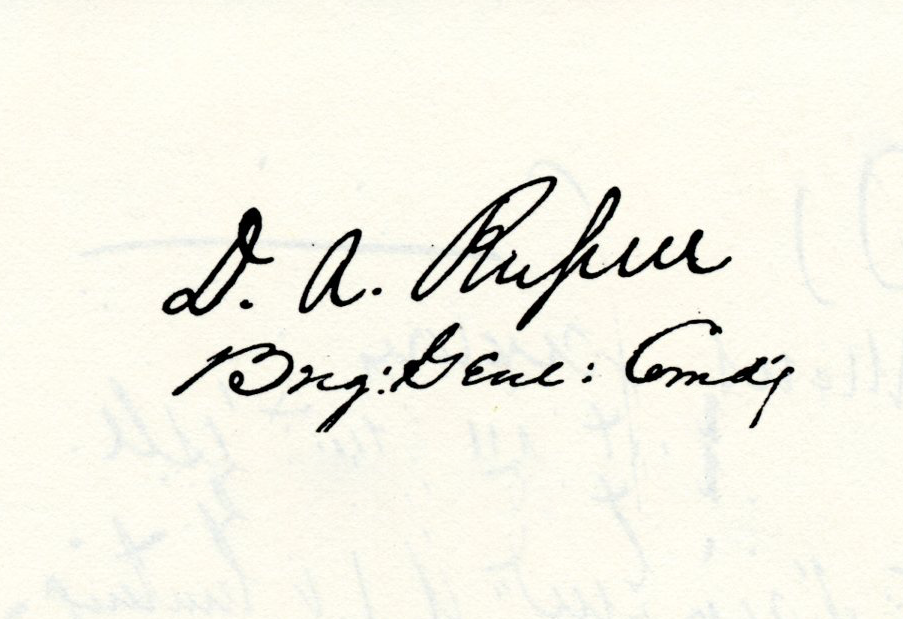 D. A. Russell
Brig: Genl: Comd'g